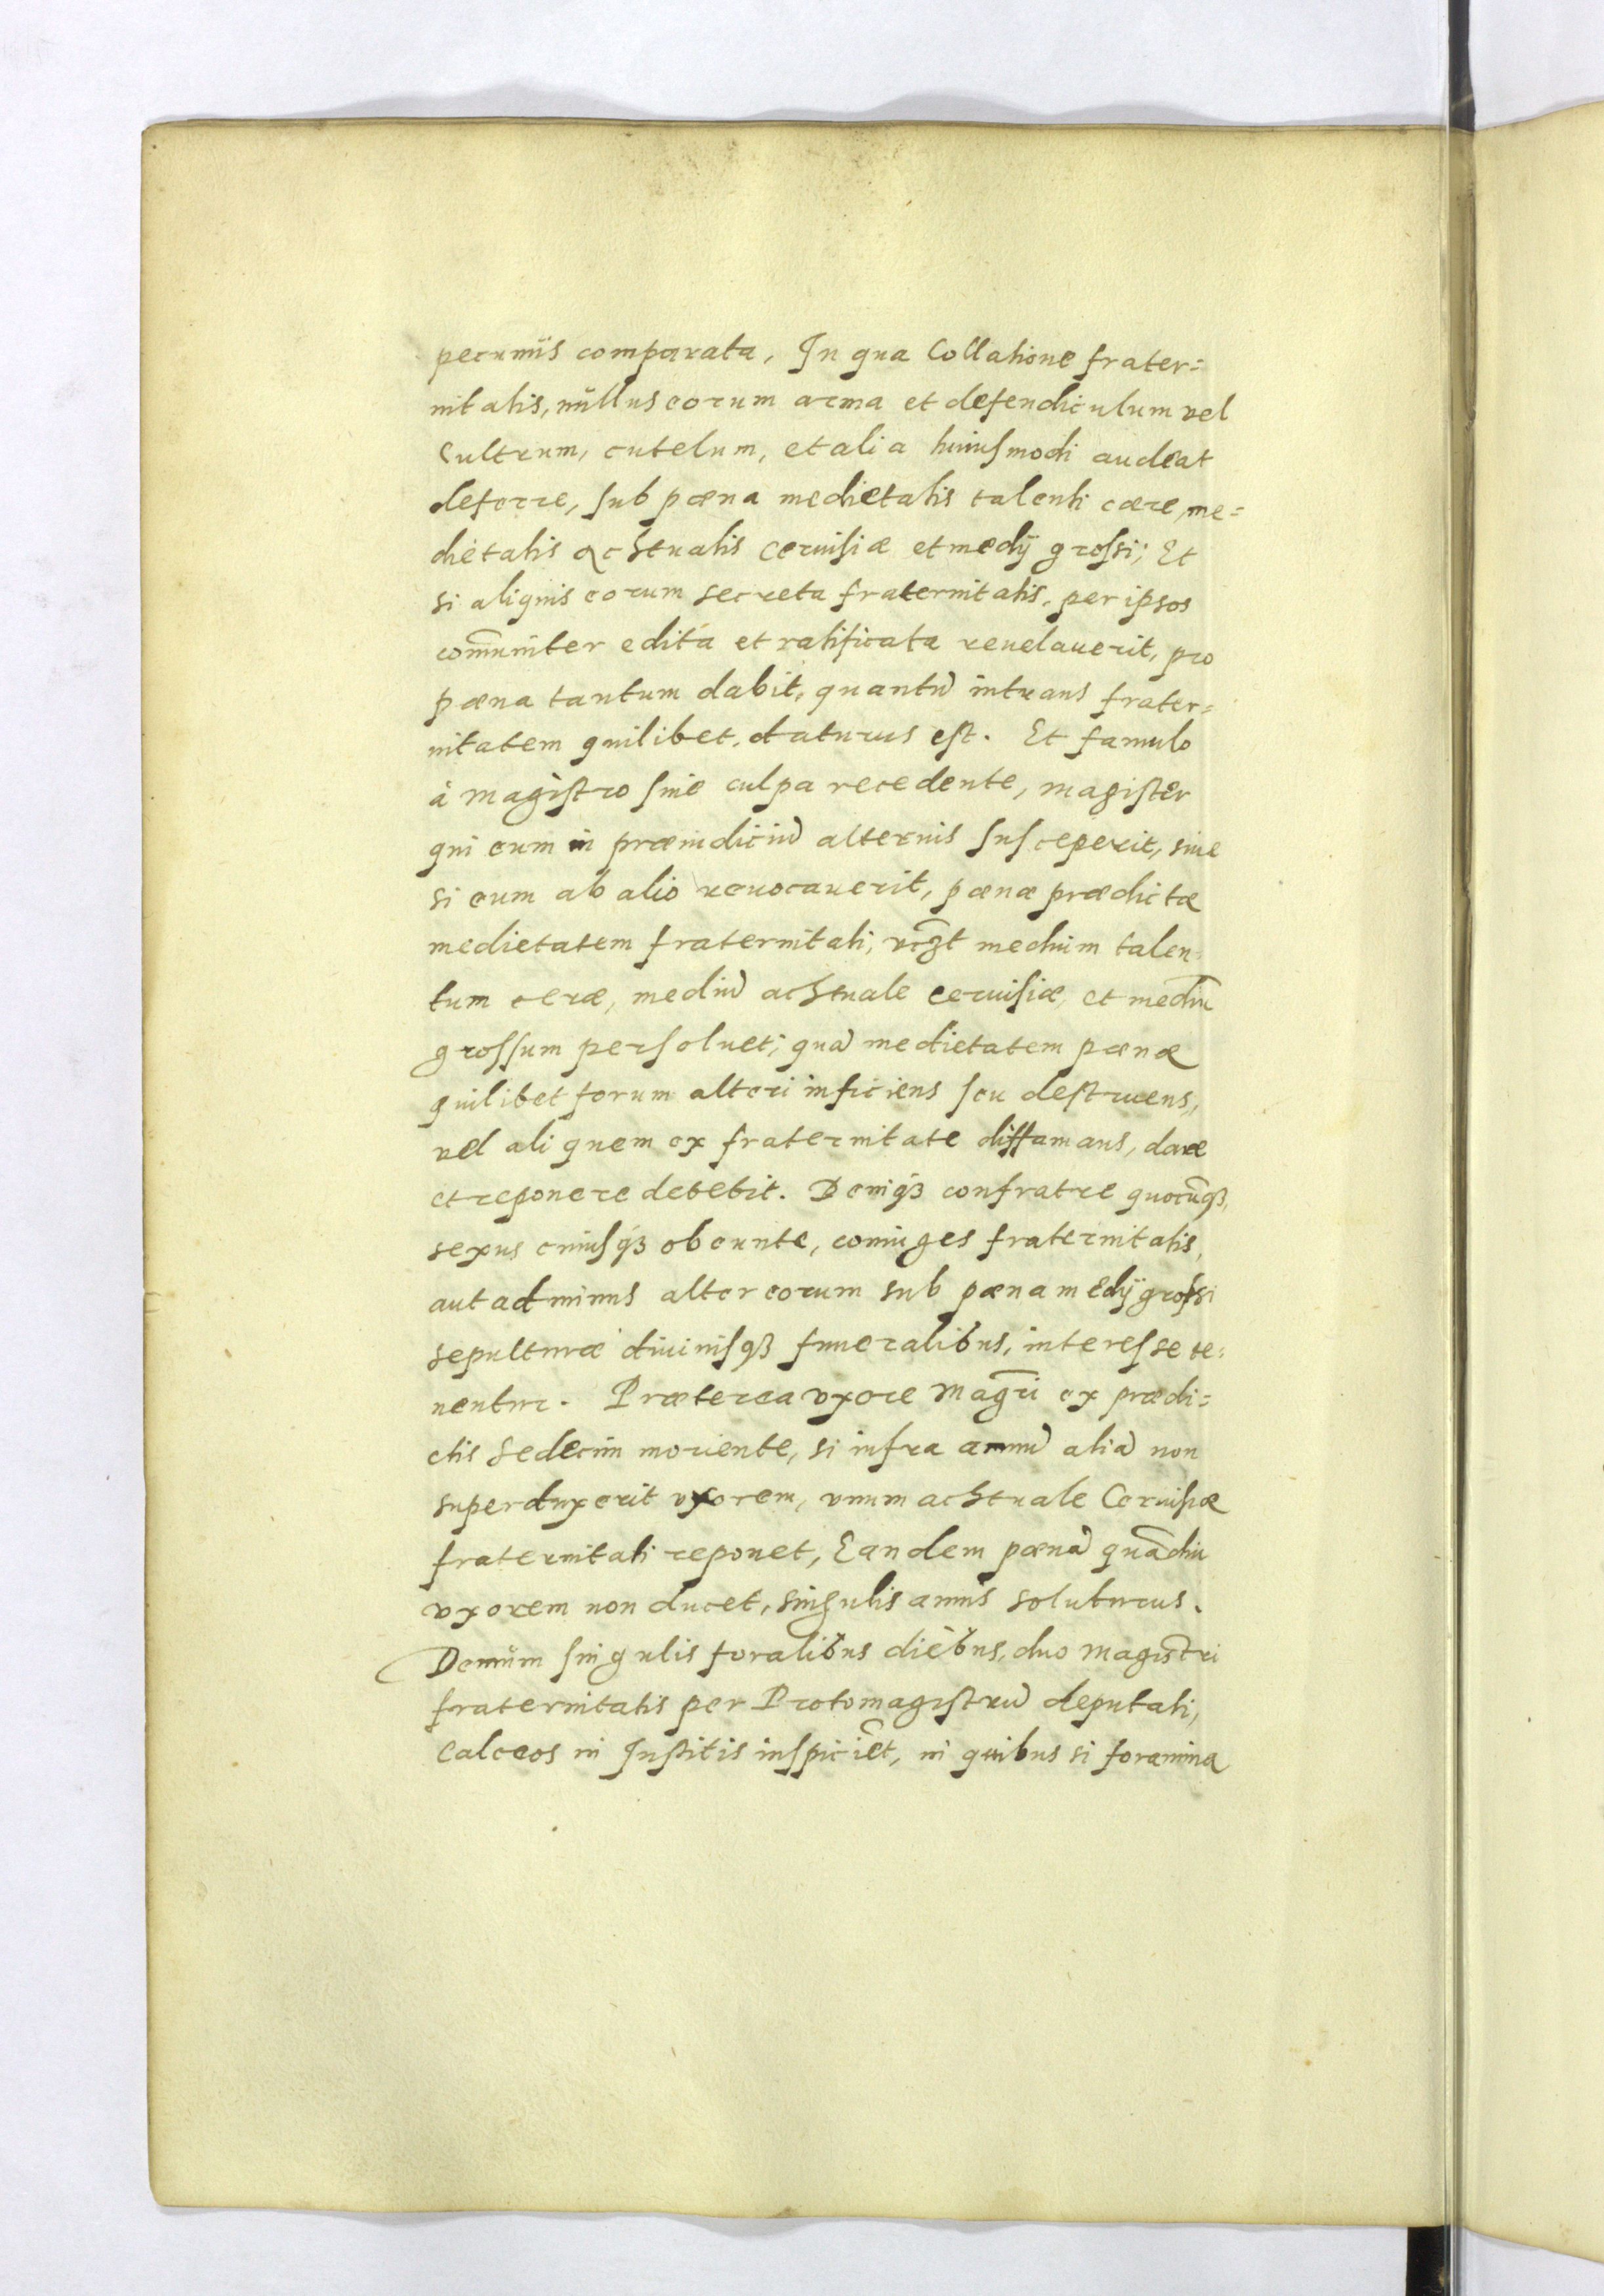 pecunijs comparata, In qua Collatione frater=
nitatis, nullus eorum arma et defendiculum vel
Cultrum, cutelum, et alia huiusmodi audeat
deferre, sub pœna medietatis talenti cæræ, me=
dietatis achtualis ceruisiæ et medij grossi; Et
si aliquis eorum secreta fraternitatis, per ipsos
com̄uniter edita et ratificata reuelauerit, pro
pœna tantum dabit, quantũ intrans frater=
nitatem quilibet, daturus est. Et famulo
à magistro sine culpa recedente, magister
qui eum in præiudiciũ alterius susceperit, siue
si eum ab alio reuocauerit, pœnæ prædictæ
medietatem fraternitati, vczt medium talen=
tum ceræ, mediũ achtuale ceruisiæ, et mediũ
grossum persoluet; quã medietatem pœnæ
quilibet forum alteri inficiens seu destruens,
vel aliquem ex fraternitate diffamans, dare
et reponere debebit. Deniqȝ confratre quocũqȝ,
sexus cuiusqȝ obeunte, coniuges fraternitatis,
aut ad minus alter eorum sub pœna medij grossi
sepulturæ diuinisqȝ funeralibus, interesse te=
nentur. Præterea vxore Magr̃i ex prædi=
ctis sedecim moriente, si infra annũ aliã non
superduxerit vxorem, vnum achtuale Ceruisiæ
fraternitati reponet, Eandem pœnã quãdiu
vxorem non ducet, singulis annis soluturus.
Demùm singulis foralibus diebus, duo magistri
fraternitatis per Protomagistrũ deputati,
Calceos in Institis inspiciẽt, in quibus si foramina